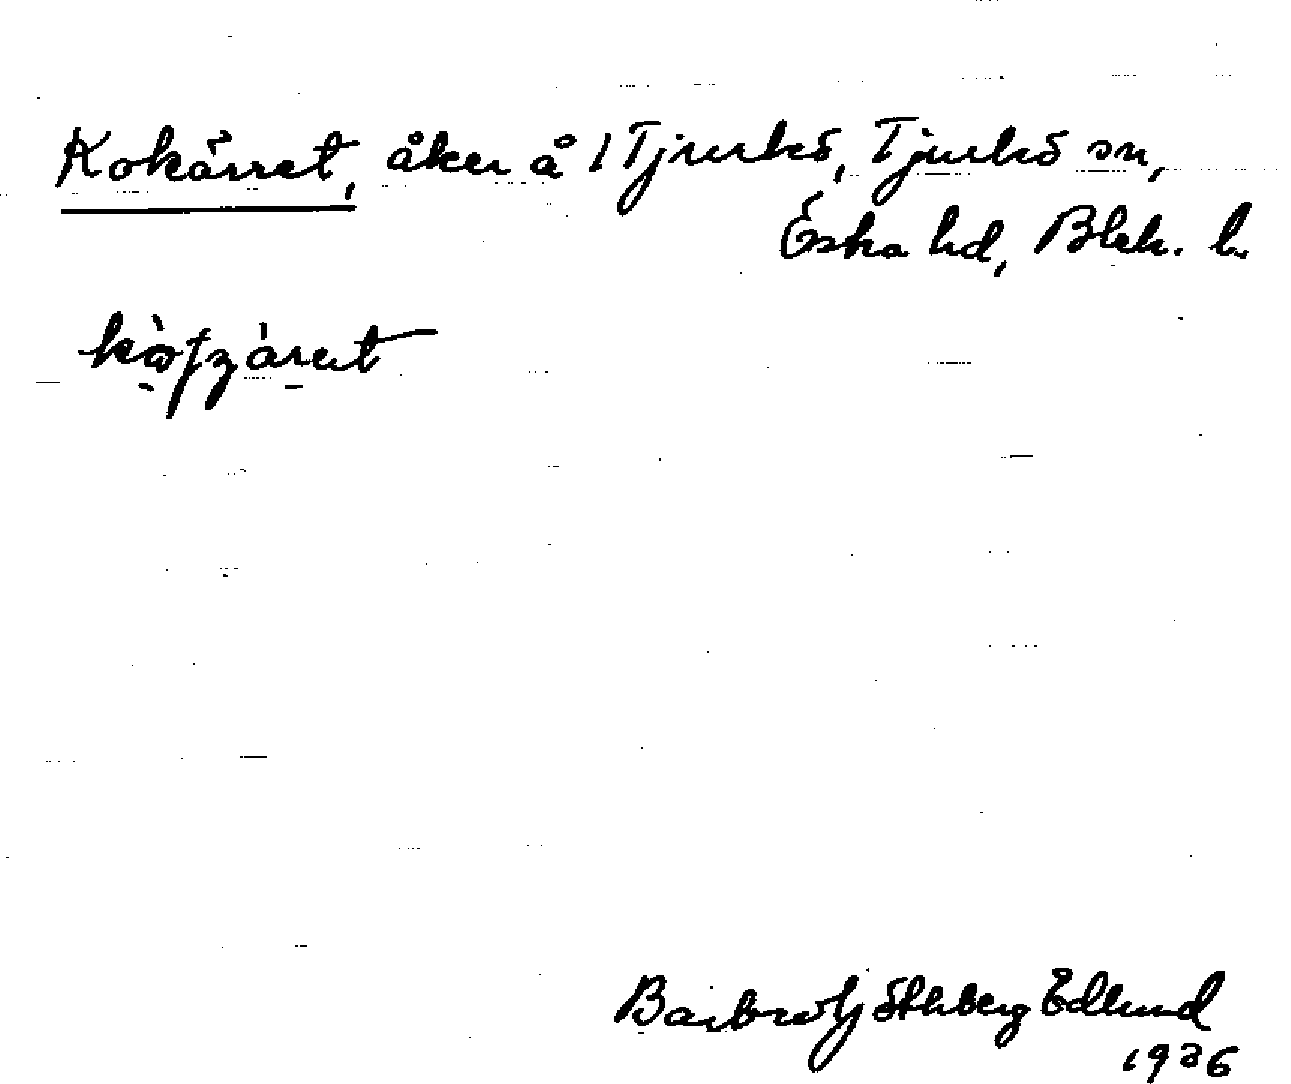 Kokärret, åker å 1 Tjurkö, Tjurkö sn,
Östra hd, Blek. l.
Barbro Göthberg Edlund
1936